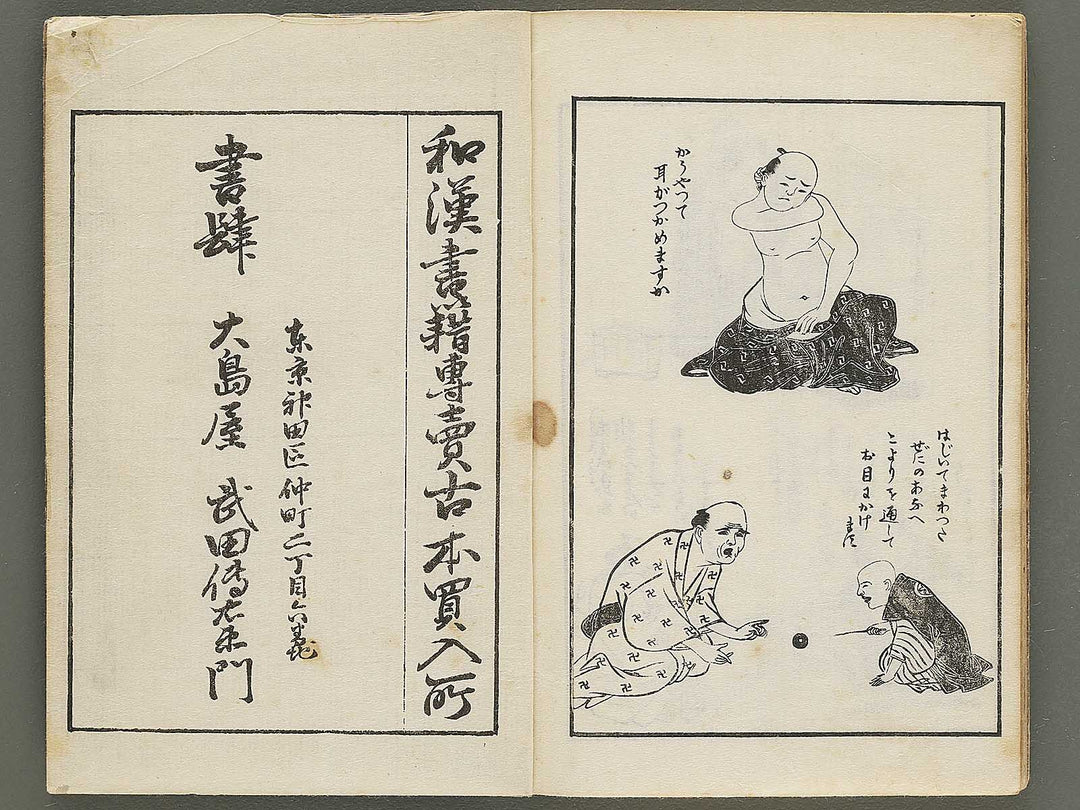 かうやつて
耳がつかめますか
はじいてまわつた
ぜにのあなへ
こよりを通して
お目にかけ
和漢書籍専賣古本買入所
东京神田區仲町二丁目六番地
書肆 大島屋 武田傳右衛門